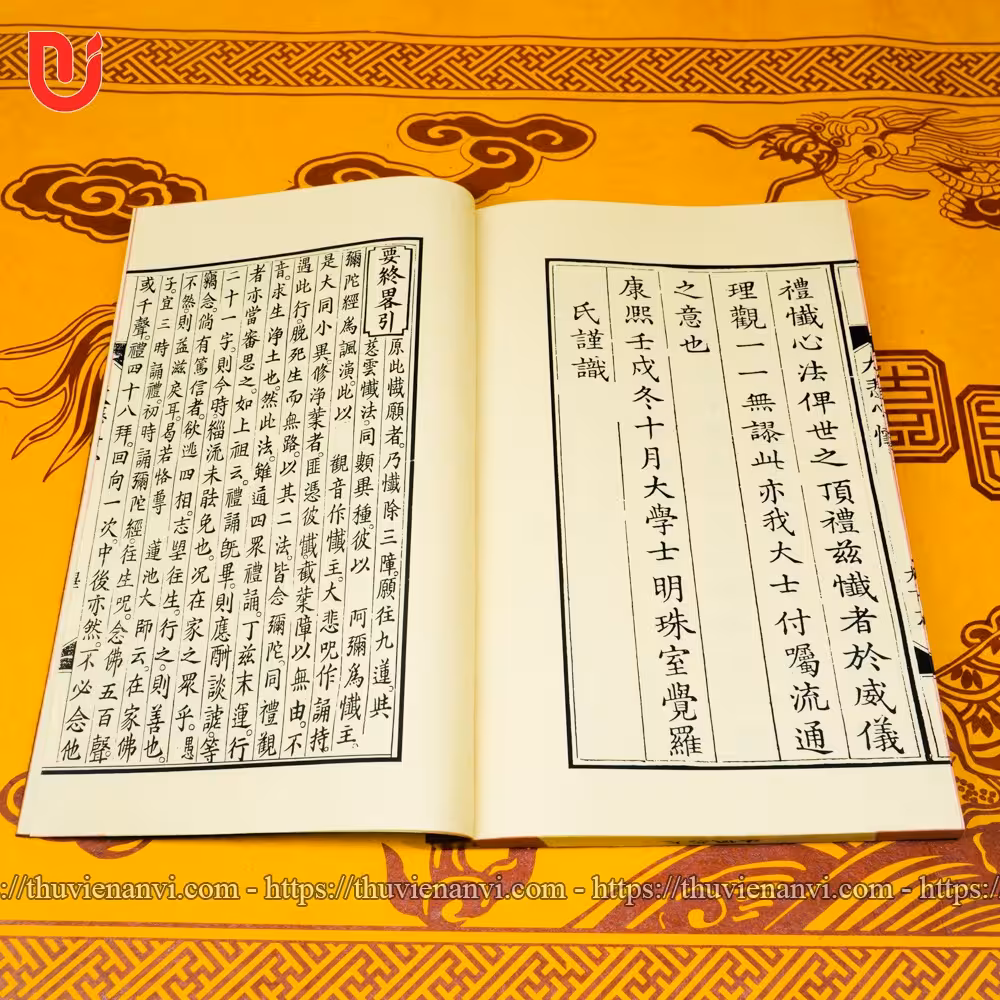 禮懺心法俾世之頂禮茲懺者於威儀
理觀一一無謬此亦我大士付囑流通
之意也
康熙壬戌冬十月大學士明珠室覺羅
氏謹識
要終畧引
原此懺願者。乃懺除三障。願往九蓮。與
慈雲懺法。同類異種。彼以 阿彌為懺主。
彌陀經為諷演。此以 觀音作懺主。大悲呪作誦持。
是大同小異。修淨業者。匪憑彼懺。截業障以無由。不
遇此行。脫死生而無路。以其二法。皆念彌陀。同禮觀
音。求生淨土也。然此法。雖通四眾禮誦。丁茲末運。行
者亦當審思之。如上祖云。禮誦旣畢。則應酬談謔。等
二十一字。則今時。緇流未能免也。況在家之眾乎。愚
竊念。倘有篤信者。欲逃四相。志望往生。行之。則善也。
不然。則益滋戾耳。曷若恪尊 蓮池大師云。在家佛
子。宜三時誦禮。初時誦彌陀經。往生呪。念佛五百聲。
或千聲。禮四十八拜。回向一次。中後亦然。不必念他
https://thuvienanvi.com - https://thuvienanvi.com - https://thuvienanvi.com